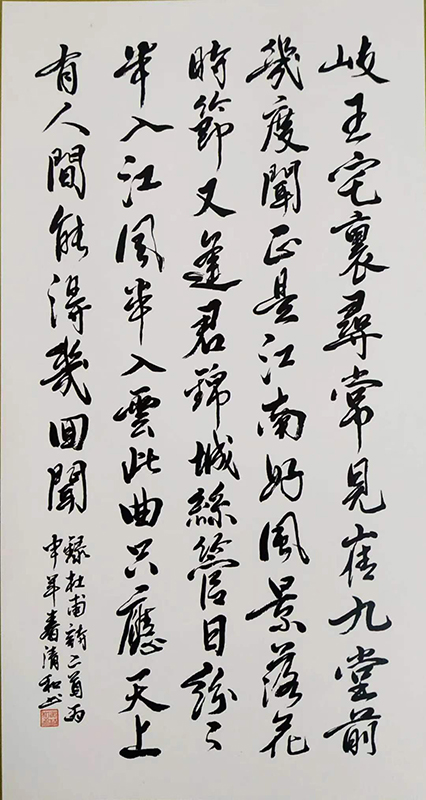 岐王宅裏尋常見崔九堂前
幾度聞正是江南好風景落花
時節又逢君錦城絲管日紛〻
半入江風半入雲此曲只應天上
有人間能得幾回聞
錄杜甫詩二首丙
申年春清和書